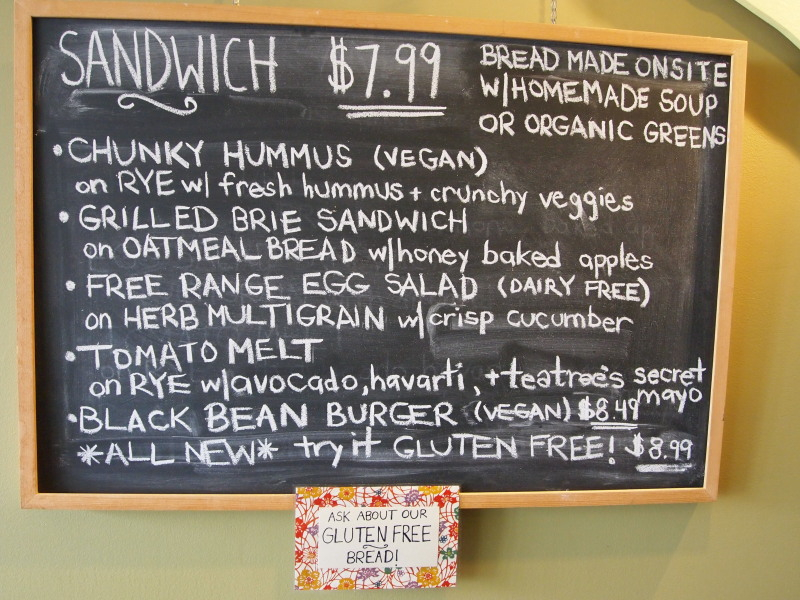 SANDWICH $7.99
BREAD MADE ONSITE
W/HOMEMADE SOUP
OR ORGANIC GREENS
• CHUNKY HUMMUS (VEGAN)
on RYE w/ fresh hummus + crunchy veggies
• GRILLED BRIE SANDWICH
on OATMEAL BREAD w/honey baked apples
• FREE RANGE EGG SALAD (DAIRY FREE)
on HERB MULTIGRAIN w/crisp cucumber
• TOMATO MELT
on RYE w/avocado, havarti, + teatree's secret mayo
• BLACK BEAN BURGER (VEGAN) $8.49
*ALL NEW* try it GLUTEN FREE! $8.99
ASK ABOUT OUR
GLUTEN FREE
BREAD!